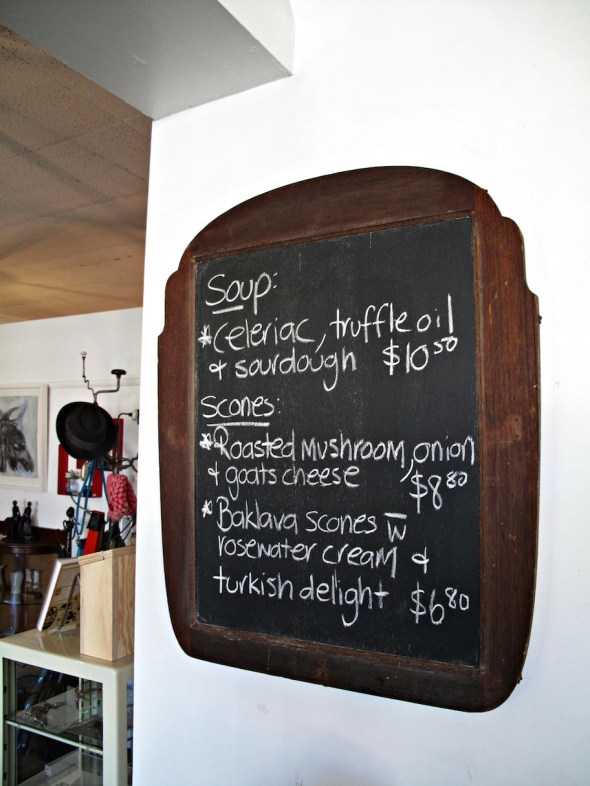 Soup:
*Celeriac, truffle oil
& sourdough $10.50
Scones:
*Roasted Mushroom, onion
& goats cheese $8.80
*Baklava scones w̅
rosewater cream &
turkish delight $6.80